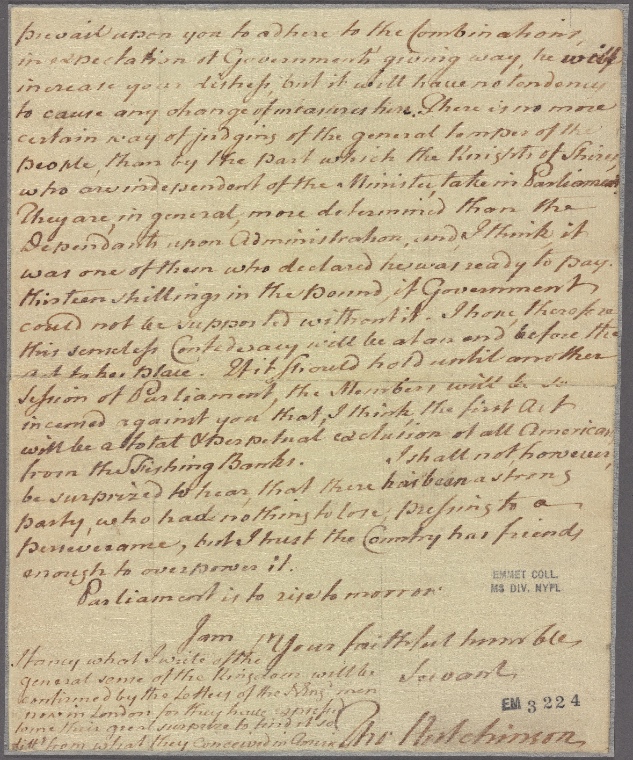 prevail upon you to adhere to the Combinations,
in expectation of Government's giving way, he will
increase your distress, but it will have no tendency
to cause any change of measures here. There is no more
certain way of judging of the general temper of the
people, than by the part which the Knights of Shires,
who are independent of the Minister, take in Parliament.
They are, in general, more determined than the
Dependants upon Administration, and I think it
was one of them who declared he was ready to pay
thirteen shillings in the pound, if Government
could not be supported without it. I hope, therefore
this senseless Confederacy will be at an end before the
act takes place. If it should hold until another
Session of Parliament, the Members will be so
incensed against you that, I think the first Act
will be a total & perpetual exclusion of all Americans
from the Fishing Banks. I shall not however,
be surprized to hear, that there has been a strong
party, who had nothing to lose, pressing to a
perseverance, but I trust the Country has friends
enough to overpower it.
Parliament is to rise to morrow
I am Your faithful humble
Servant
Tho Hutchinson
I fancy what I write of the
general sense of the Kingdom will be
confirmed by the Letters of the men
now in London for they have expressed
to me their great surprize to find it so
diff.t from what they conceived in America
EMMET COLL.
MS DIV. NYPL
EM 3224